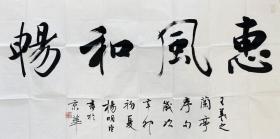 惠風和暢
王羲之
蘭亭
序句
歲次
辛卯
初夏
楊明臣
書於
京華